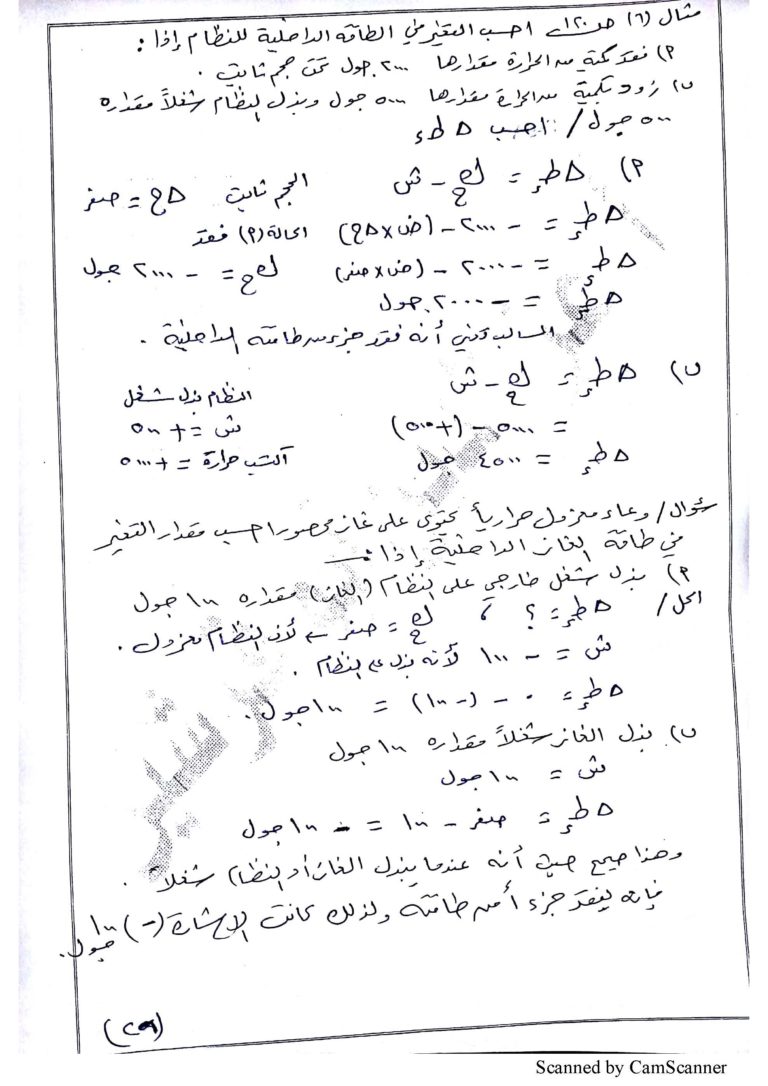 مثال (٦) صـ ١٢٠ احسب التغير في الطاقة الداخلية للنظام إذا :
٩) فقد كمية من الحرارة مقدارها ٢٠٠٠ جول تحت حجم ثابت .
ب) زود بكمية من الحرارة مقدارها ٥٠٠٠ جول وبذل النظام شغلاً مقداره
٥٠٠ جول / احسب Δ طء
٩) Δ طء = كح - ش الحجم ثابت Δح = صفر
Δ طء = - ٢٠٠٠ - (ض × Δح) الحالة (٩) فقد
Δ طء = - ٢٠٠٠ - (ض × صفر) كح = - ٢٠٠٠ جول
Δ طء = - ٢٠٠٠ جول
السالب تعني أنه فقد جزء من طاقته الداخلية .
ب) Δ طء = كح - ش النظام بذل شغل
= ٥٠٠٠ - (+٥٠٠) ش = + ٥٠٠
Δ طء = ٤٥٠٠ جول اكتسب حرارة = + ٥٠٠٠
سؤال / وعاء معزول حرارياً يحتوي على غاز محصور احسب مقدار التغير
في طاقة الغاز الداخلية إذا :
٩) بذل شغل خارجي على النظام (الغاز) مقداره ١٠٠ جول
الحل / Δ طء = ؟ ، كح = صفر ← لأن النظام معزول .
ش = - ١٠٠ لأنه بذل على النظام .
Δ طء = ٠ - (-١٠٠) = ١٠٠ جول .
ب) بذل الغاز شغلاً مقداره ١٠٠ جول
ش = ١٠٠ جول
Δ طء = صفر - ١٠٠ = - ١٠٠ جول
وهذا صحيح حيث أنه عندما يبذل الغاز أو النظام شغلاً .
فإنه يفقد جزء من طاقته ولذلك كانت الإشارة (-) ١٠٠ جول .
(٢٩)
Scanned by CamScanner